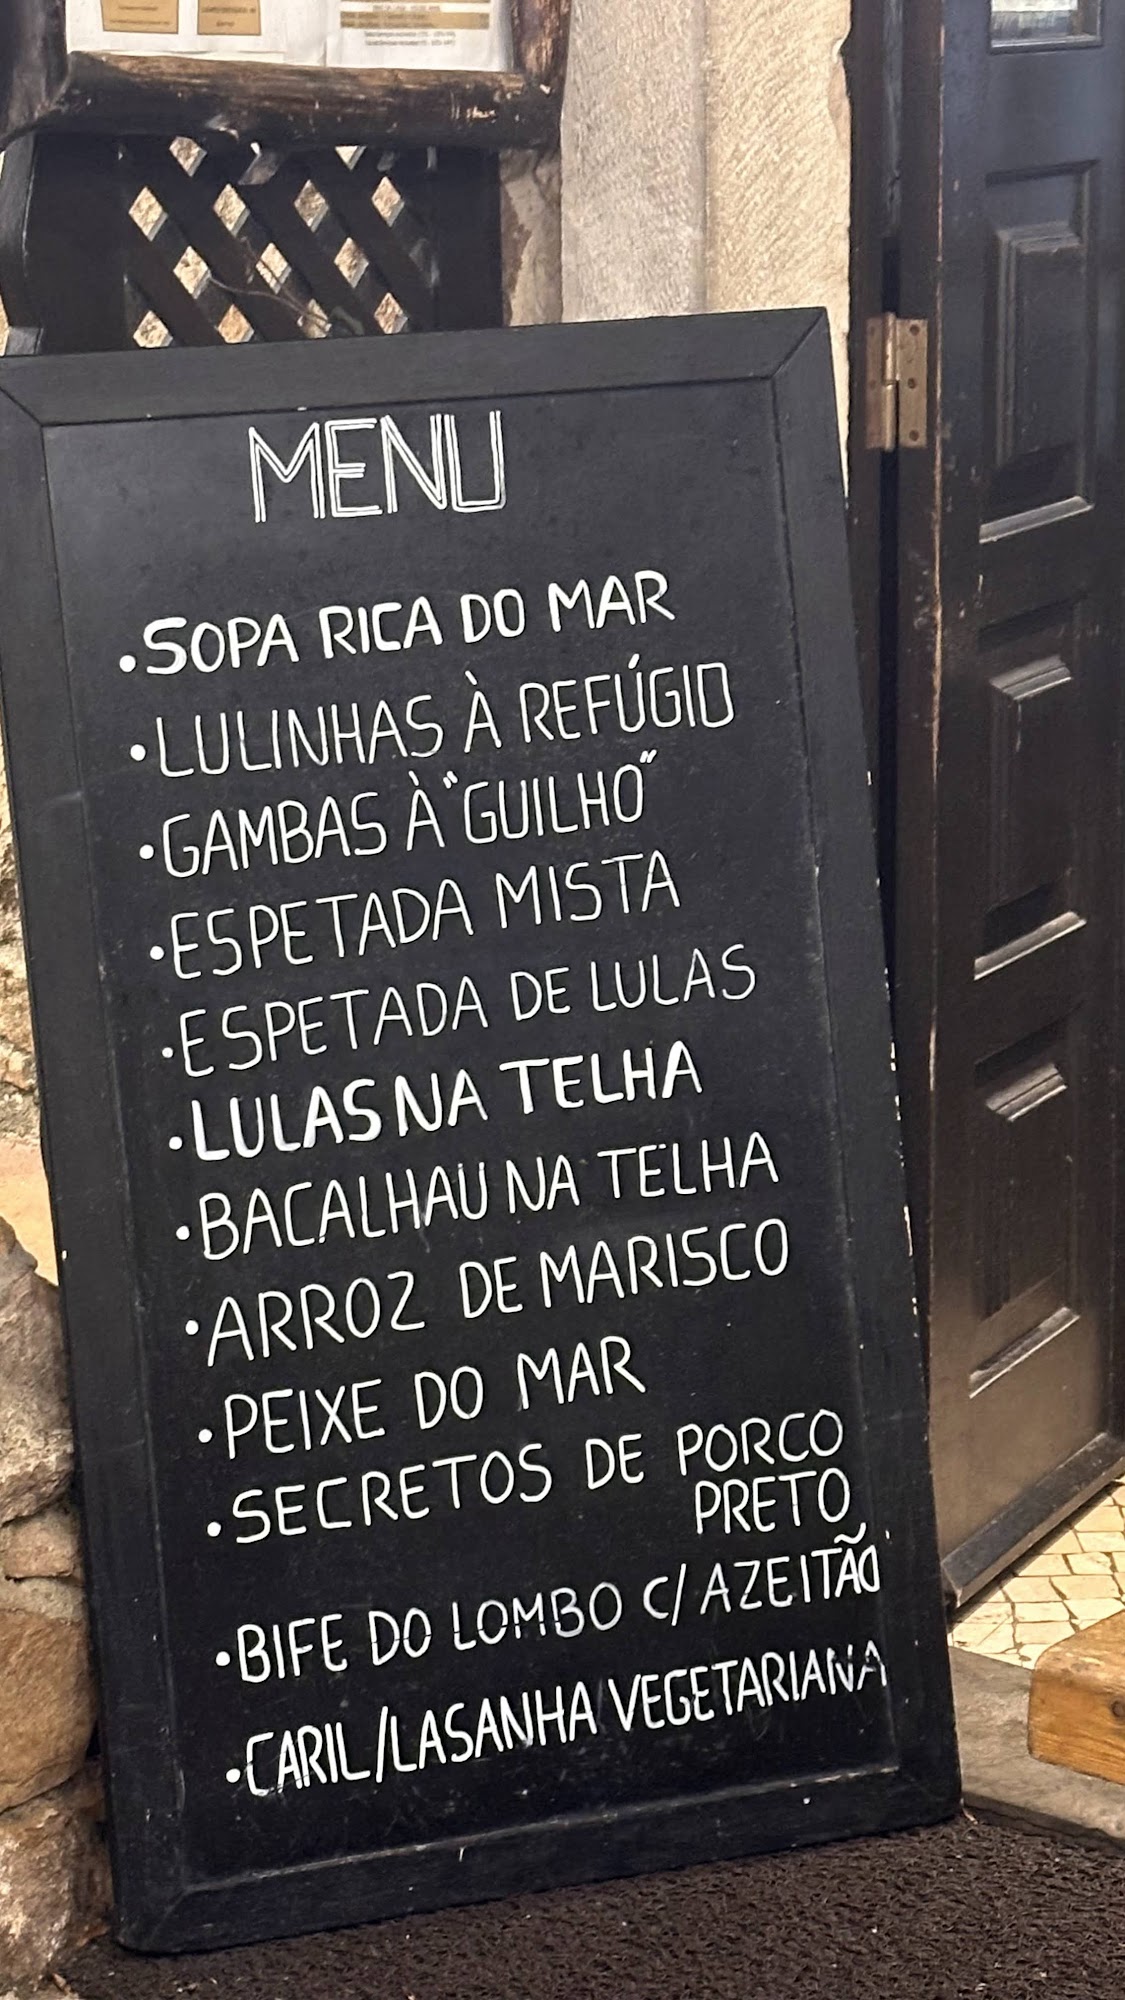 MENU
• SOPA RICA DO MAR
• LULINHAS À REFÚGIO
• GAMBAS À "GUILHO"
• ESPETADA MISTA
• ESPETADA DE LULAS
• LULAS NA TELHA
• BACALHAU NA TELHA
• ARROZ DE MARISCO
• PEIXE DO MAR
• SECRETOS DE PORCO
PRETO
• BIFE DO LOMBO C/ AZEITÃO
• CARIL/LASANHA VEGETARIANA